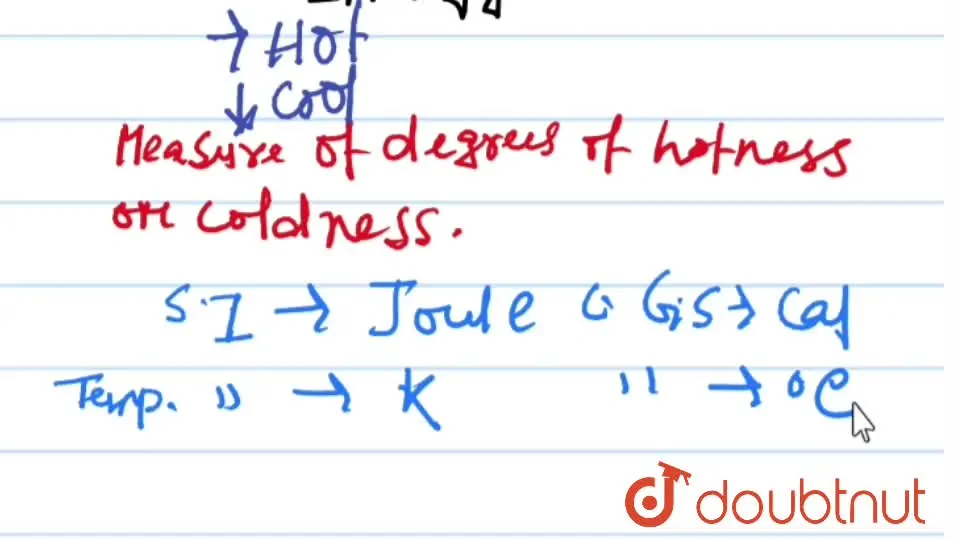 → Hot
↓ Cool
Measure of degrees of hotness
or coldness.
S.I → Joule C.G.S → Cal
Temp. " → K " → °C
doubtnut